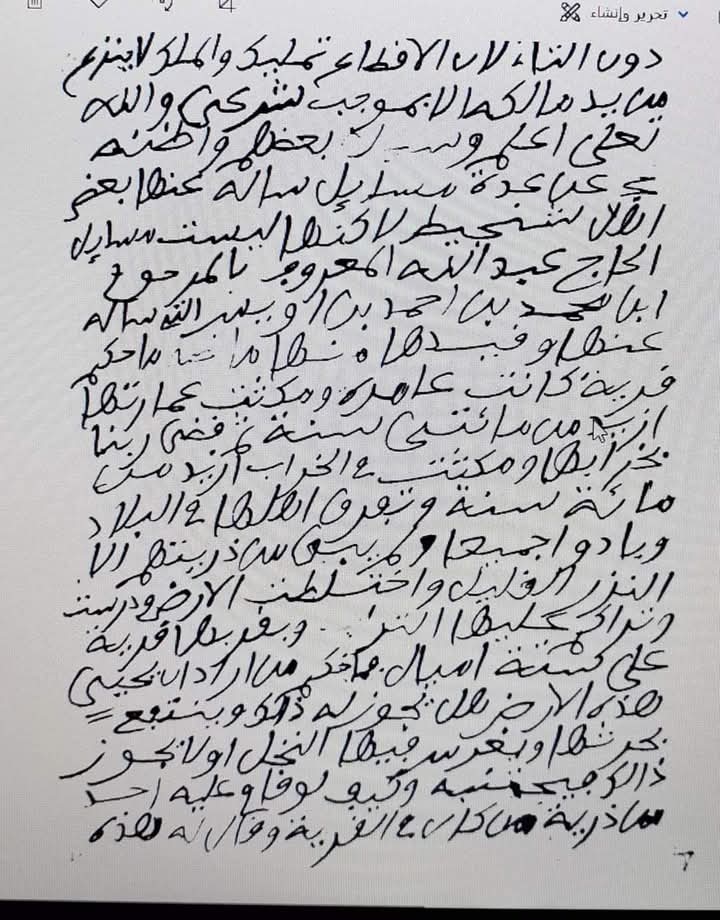 تحرير وإنشاء
دون البناء لان الاقطاع تمليك والملك لا ينزع
من يد مالكه الا بموجب شرعي والله
تعلى اعلم بعضهم واظنه
ع عن عدة مسايل ساله عنها بعض
اهل شنجيط لاكنها ليست مسايل
الحاج عبد الله المعروف
ابن محمد بن احمد بن ساله
عنها وقيدها ما حكم
قرية كانت عامرة ومكثت عمارتها
ازيد من مائتي سنة ثم قضى ربنا
بخرابها ومكثت ع الخراب ازيد من
مائة سنة وتفرق اهلها ع البلاد
وبادوا جميعا ولم يبق من ذريتهم الا
النزر القليل واختلطت الارض ودرست
وتراكم عليها وبقربها قرية
على ستة اميال فما حكم من اراد ان يحيي
هذه الارض هل يجوز له ذلك وينتفع
بحرثها ويغرس فيها النخل او لا يجوز
ذالك وكيف لو قام عليه احد
من ذرية من كان ع القرية وقال له هذه
7